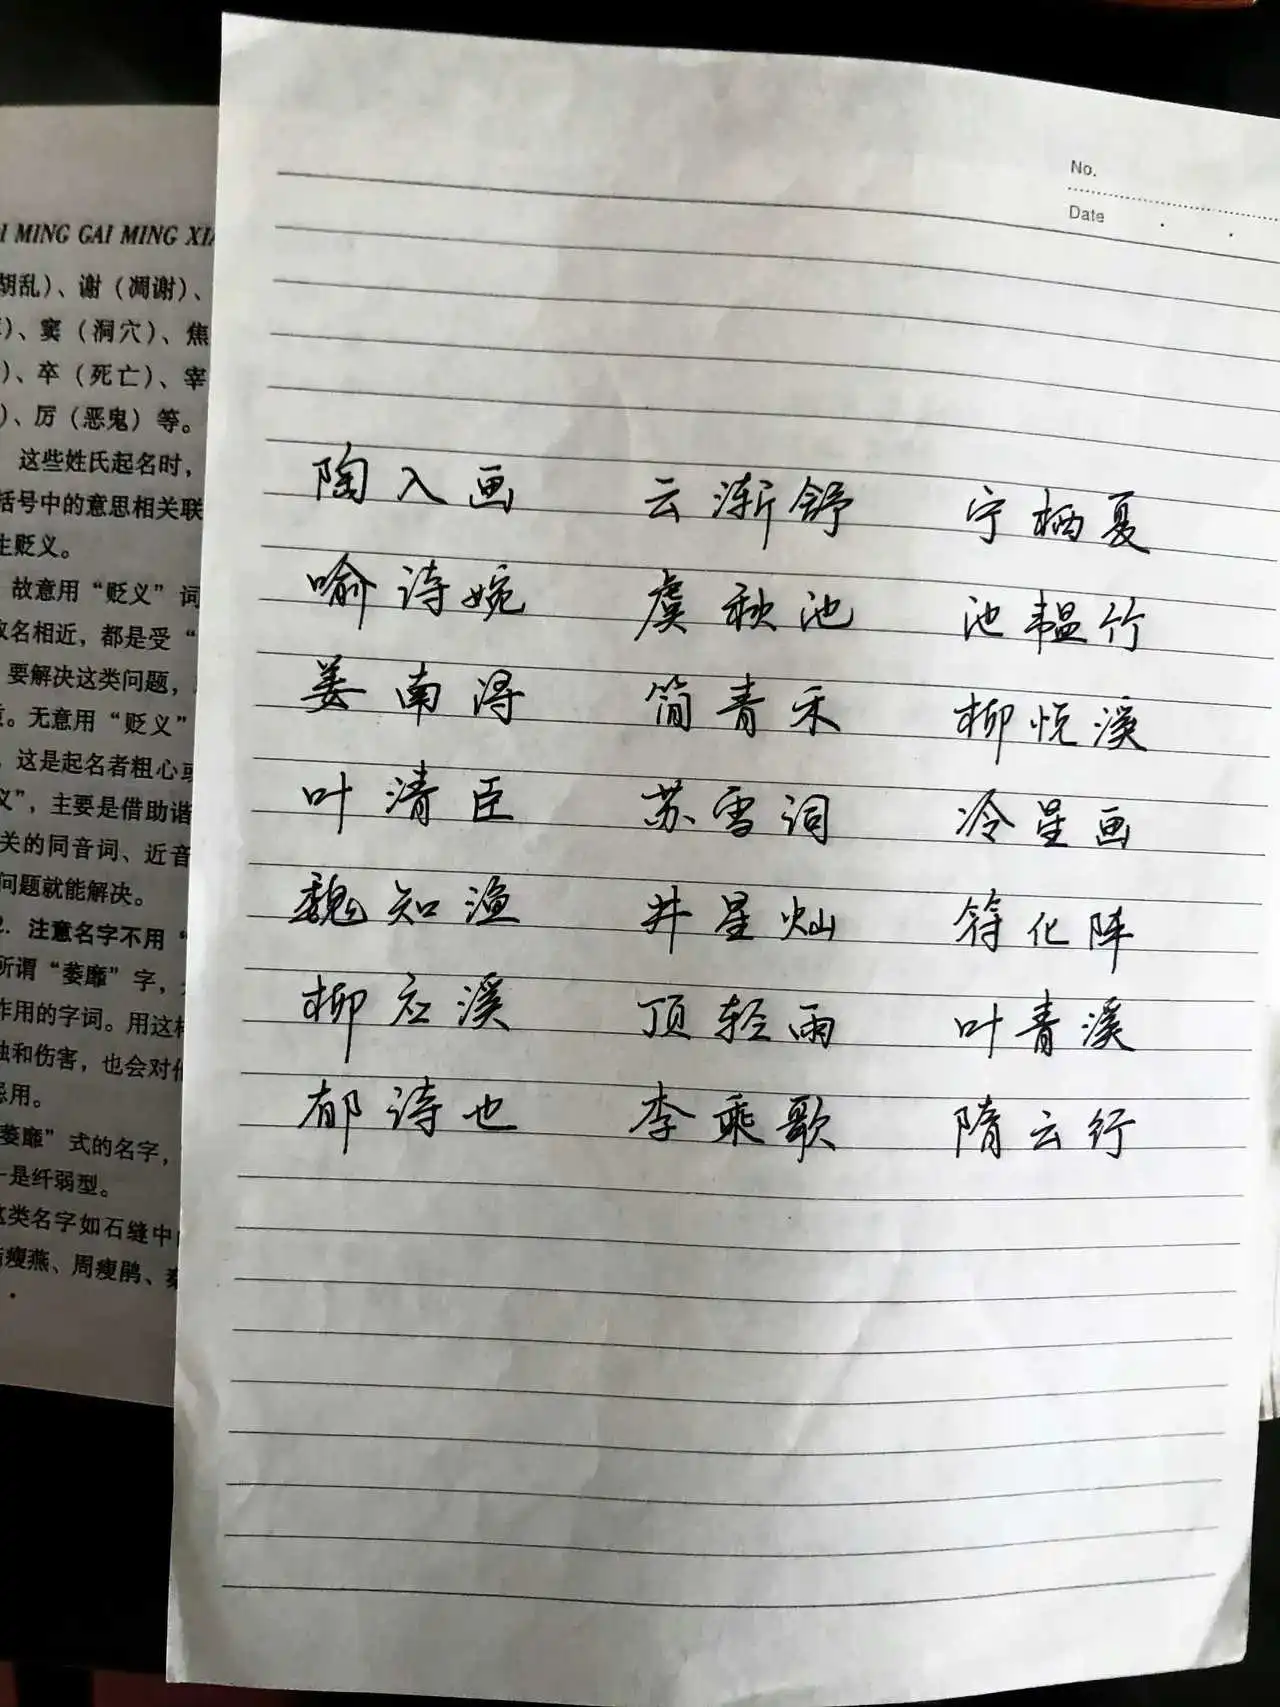 No.
Date
I MING GAI MING XIA
胡乱）、谢（凋谢）、
）、窦（洞穴）、焦
）、卒（死亡）、宰
）、厉（恶鬼）等。
这些姓氏起名时，
括号中的意思相关联
生贬义。
故意用“贬义”词
取名相近，都是受“
要解决这类问题，
。无意用“贬义”
，这是起名者粗心或
义”，主要是借助谐
关的同音词、近音
问题就能解决。
2. 注意名字不用“
所谓“萎靡”字，
作用的字词。用这样
独和伤害，也会对他
忌用。
“萎靡”式的名字，
一是纤弱型。
这类名字如石缝中
瘦燕、周瘦鹃、秦
陶入画 云渐舒 宁栖夏
喻诗婉 虞秋池 池韫竹
姜南浔 简青禾 柳悦溪
叶清臣 苏雪词 冷星画
魏知渔 井星灿 符化阵
柳应溪 顶轻雨 叶青溪
郁诗也 李乘歌 隋云行